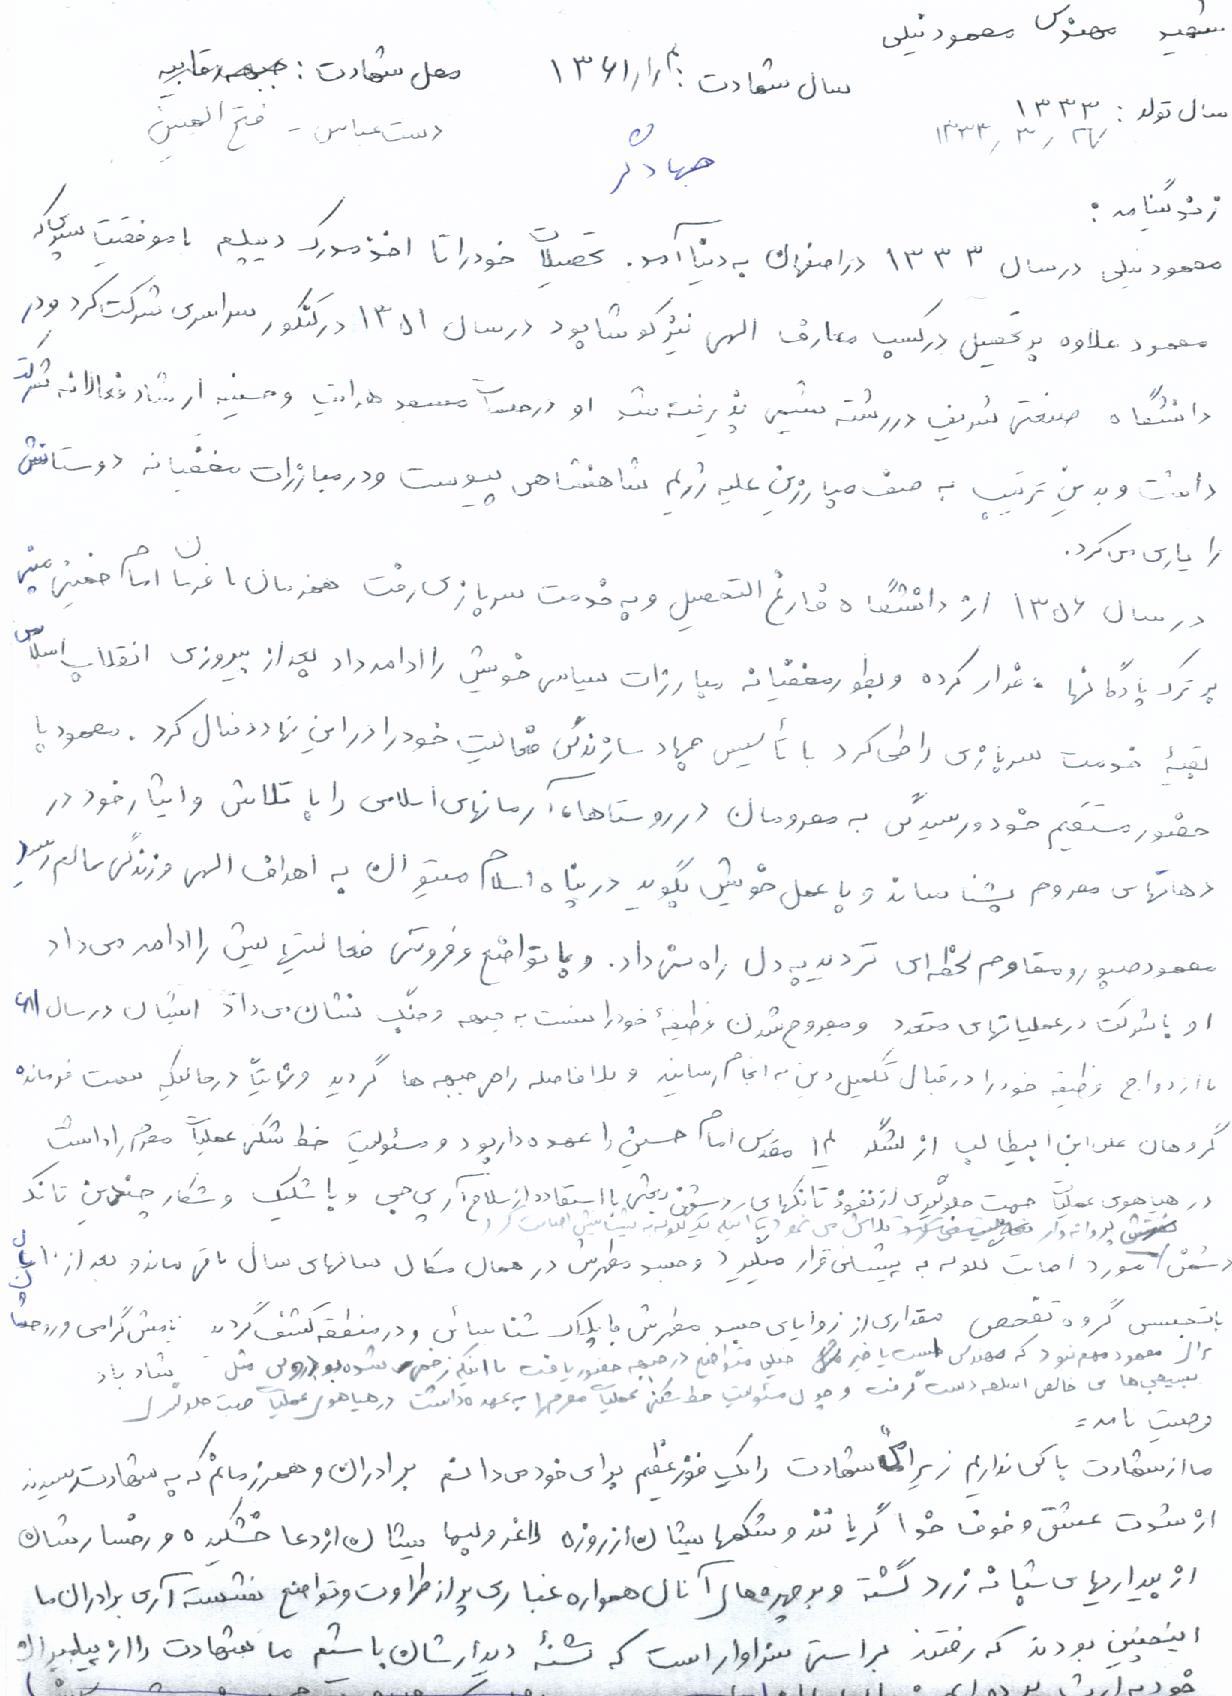 شهید مهندس محمود نیلی
سال تولد : ۱۳۳۳ سال شهادت : ۱۳۶۱/۱/ محل شهادت : جبهه رقابیه
۱۳۳۳/۳/۲۶ دست عباس - فتح المبین
جهادگر
زندگینامه :
محمود نیلی در سال ۱۳۳۳ در اصفهان به دنیا آمد. تحصیلات خود را تا اخذ مدرک دیپلم با موفقیت سپری که
محمود علاوه بر تحصیل در کسب معارف الهی نیز کوشا بود در سال ۱۳۵۱ در کنکور سراسری شرکت کرد و در
دانشگاه صنعتی شریف در رشته شیمی پذیرفته شد او در جلسات مسجد هدایت و حسینیه ارشاد فعالانه شرکت
داشت و بدین ترتیب به صف مبارزین علیه رژیم شاهنشاهی پیوست و در مبارزات مخفیانه دوستانش
را یاری می کرد.
در سال ۱۳۵۶ از دانشگاه فارغ التحصیل و به خدمت سربازی رفت همزمان با فرمان امام خمینی مبنی
بر ترک پادگانها ، فرار کرده و بطور مخفیانه مبارزات سیاسی خویش را ادامه داد بعد از پیروزی انقلاب اسلامی
بقیهٔ خدمت سربازی را طی کرد با تأسیس جهاد سازندگی فعالیت خود را در این نهاد دنبال کرد . محمود با
حضور مستقیم خود و رسیدگی به محرومان در روستاها، آرمانهای اسلامی را با تلاش و ایثار خود در
دهاتهای محروم بشناساند و با عمل خویش بگوید در پناه اسلام میتوان به اهداف الهی و زندگی سالم رسید
محمود صبور و مقاوم لحظه ای تردید به دل راه نمی داد . و با تواضع و فروتنی فعالیتهایش را ادامه می داد
او با شرکت در عملیاتهای متعدد و مجروح شدن وظیفهٔ خود را نسبت به جبهه و جنگ نشان می داد ایشان در سال
با ازدواج وظیفه خود را در قبال تکمیل دین به انجام رسانید و بلافاصله راهی جبهه ها گردید و نهایتاً در حالیکه سمت فرمانده
گروهان علی ابن ابیطالب از لشگر ۱۴ مقدس امام حسین را عهده دار بود و مسئولیت خط شکنی عملیات محرم را داشت
در هیاهوی عملیات جهت جلوگیری از نفوذ تانکهای دشمن بعثی با استفاده از سلاح آر پی جی و با شلیک و شکار چندین تانک
پروانه وار تلاش می نمود تا اینکه تیر گلوله به پیشانیش اصابت کرد
دشمن مورد اصابت گلوله به پیشانی قرار میگیرد و جسد مطهرش در همان مکان سالهای سال باقی ماند و بعد از ۱۰ سال
با تجسس گروه تفحص مقداری از زوایای جسد مطهرش با پلاک شناسائی و در منطقه کشف گردید یادش گرامی و روحش
برای محمود مهم نبود که مهندس است یا خیر خیلی متواضع در جبهه حضور یافت با اینکه زخمی شده بود مثل شاد باد
بسیجی های خالص اسلحه دست گرفت و چون مسئولیت خط شکنی عملیات محرم را به عهده داشت در هیاهوی عملیات جهت جلوگیری
وصیت نامه :
ما از شهادت باکی نداریم زیرا شهادت را یک فوز عظیم برای خود می دانیم برادران و همرزمانم که به شهادت رسیدند
از شدت عشق و خوف خدا گریانند و شکمهایشان از روزه لاغر و لبهایشان از دعا خشکیده و رخسارشان
از بیداریهای شبانه زرد گشته و بر چهره های آنان همواره غباری پر از طراوت و تواضع نشسته آری برادران ما
اینچنین بودند که رفتند براستی سزاوار است که تشنهٔ دیدارشان باشیم ما شهادت را از پیامبران